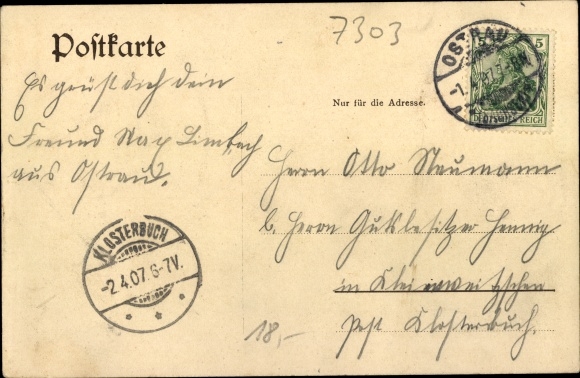 7303
Postkarte
Es grüst dich dein
Freund Max Limbach
aus Ostrau.
Nur für die Adresse.
OSTRAU
5
DEUTSCHES REICH
Herrn Otto Neumann
b. Herrn Gutsbesitzer Hennig
in Kleinweitzschen
Post Klosterbuch.
KLOSTERBUCH
-2.4.07.6-7V.
18,-